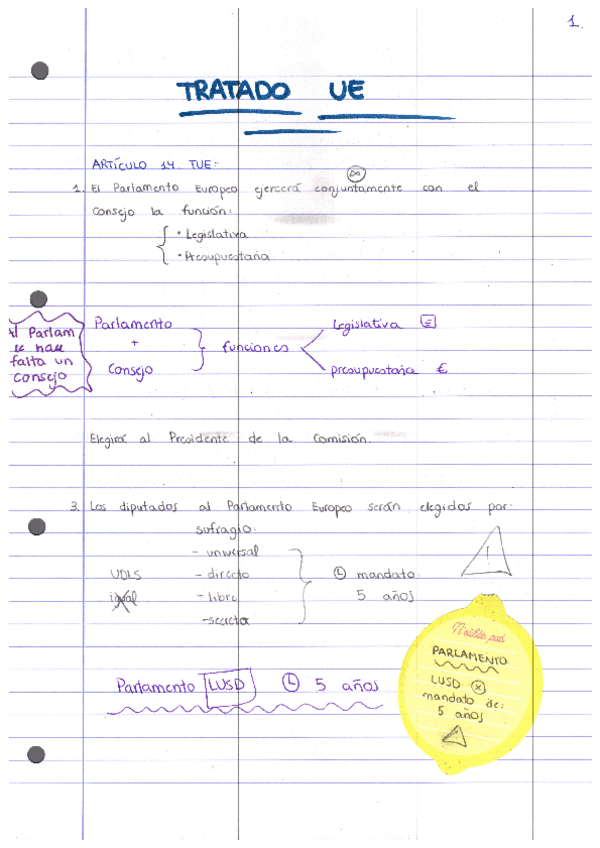 1.
TRATADO UE
ARTÍCULO 14. TUE:
1. El Parlamento Europeo ejercerá conjuntamente con el
Consejo la función:
· Legislativa
· Presupuestaria
Al Parlam
le hace
falta un
consejo
Parlamento
+
Consejo
funciones
Legislativa
presupuestaria €
Elegirá al Presidente de la Comisión.
3. Los diputados al Parlamento Europeo serán elegidos por:
sufragio:
- universal
UDLS - directo
igual - libre
- secreto
mandato
5 años
!
Parlamento LUSD 5 años
PARLAMENTO
LUSD
mandato de:
5 años